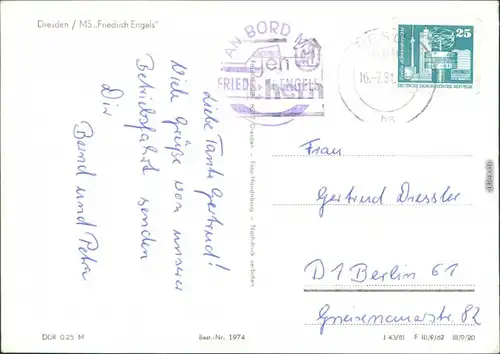 Dresden / MS „Friedrich Engels"
AN BORD M
gen
FRIEDR ENGELS
16.-7.81
25
DEUTSCHE DEMOKRATISCHE REPUBLIK
Liebe Tante Gertrud!
Viele Grüße von unserer
Betriebsfahrt senden
Dir
Bernd und Petra
Nachdruck verboten
Frau
Gertrud Dressler
D1 Berlin 61
Gneisenaustr. 82
DDR 0.25 M
Best.-Nr. 1974
J 43/81 F III/9/62 III/9/20